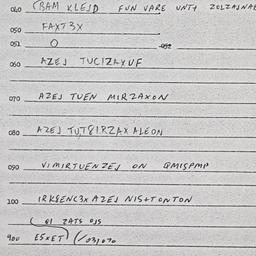 040 (BAM KLEJD FUN VARE UNTY ZOLZAJNAE
050 FAXT3X
051 O 052
060 AZEJ TUCIZAYUF
070 AZEJ TUEN MIRZAXON
080 AZEJ TUT8IRZAX ALEON
090 VIMIRTUENZEJ ON @MISPMP
100 IRK8ENC3X AZEJ NIS+TONTON
ZATS OJS
900 ESXET) (/031070